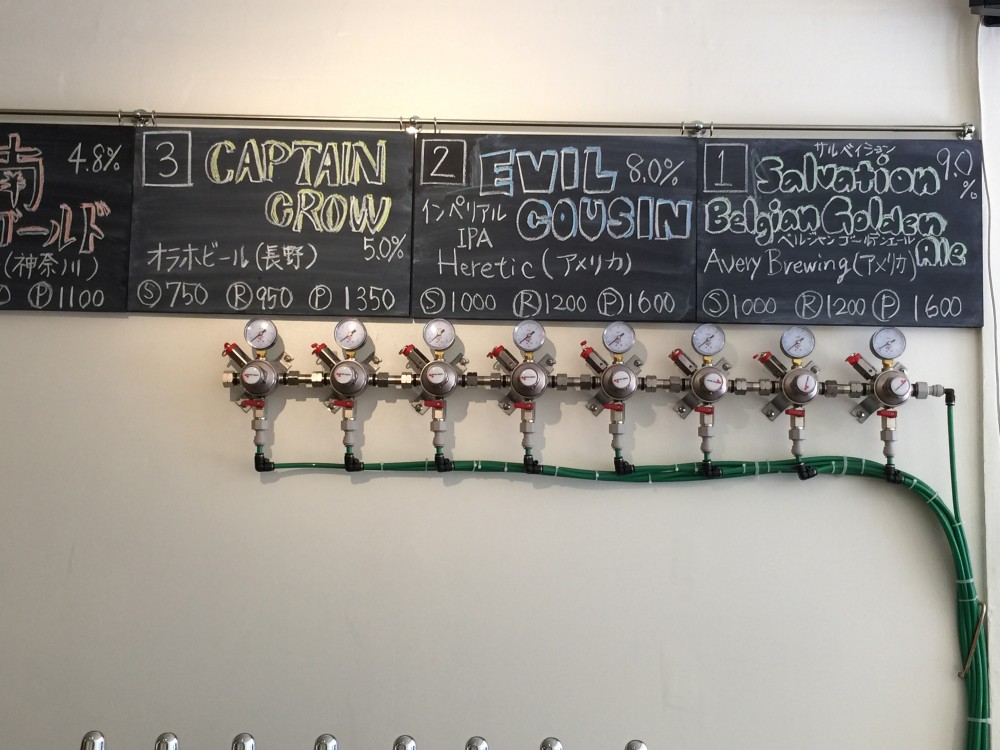 4.8%
ゴールド
(神奈川)
Ⓟ1100
3
CAPTAIN
CROW
5.0%
オラホビール(長野)
Ⓢ750 Ⓡ950 Ⓟ1350
2
EVIL 8.0%
COUSIN
インペリアル
IPA
Heretic (アメリカ)
Ⓢ1000 Ⓡ1200 Ⓟ1600
1
サルベイション
Salvation 9.0%
Belgian Golden
ベルジャンゴールデンエール
Ale
Avery Brewing (アメリカ)
Ⓢ1000 Ⓡ1200 Ⓟ1600